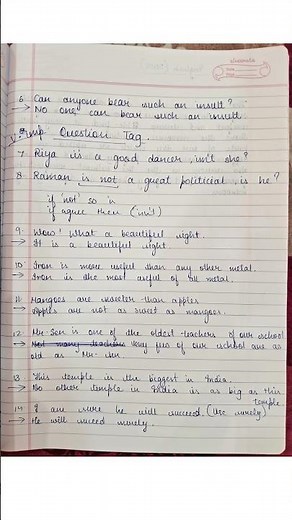 6. Can anyone bear such an insult?
→ No one can bear such an insult.
V.Imp Question Tag.
7 Riya is a good dancer, isn't she?
8. Raman is not a great politicial, is he?
if 'not' so is
if agree then (isn't)
9. Wow! What a beautiful sight.
→ It is a beautiful sight.
10. Iron is more useful than any other metal.
→ Iron is the most useful of all metal.
11. Mangoes are sweeter than apples
→ Apples are not as sweet as mangoes.
12. Mr. Sen is one of the oldest teachers of our school
→ Not many teachers Very few of our school are as
old as Mr. Sen
13. This temple is the biggest in India.
→ No other temple in India is as big as this
temple
14. I am sure he will succeed. (Use surely)
→ He will succed surely.